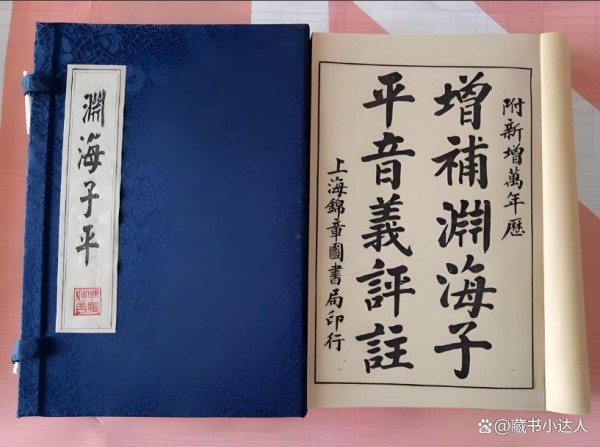 淵海子平
附新增萬年歷
增補淵海子
平音義評註
上海錦章圖書局印行
藏书小达人